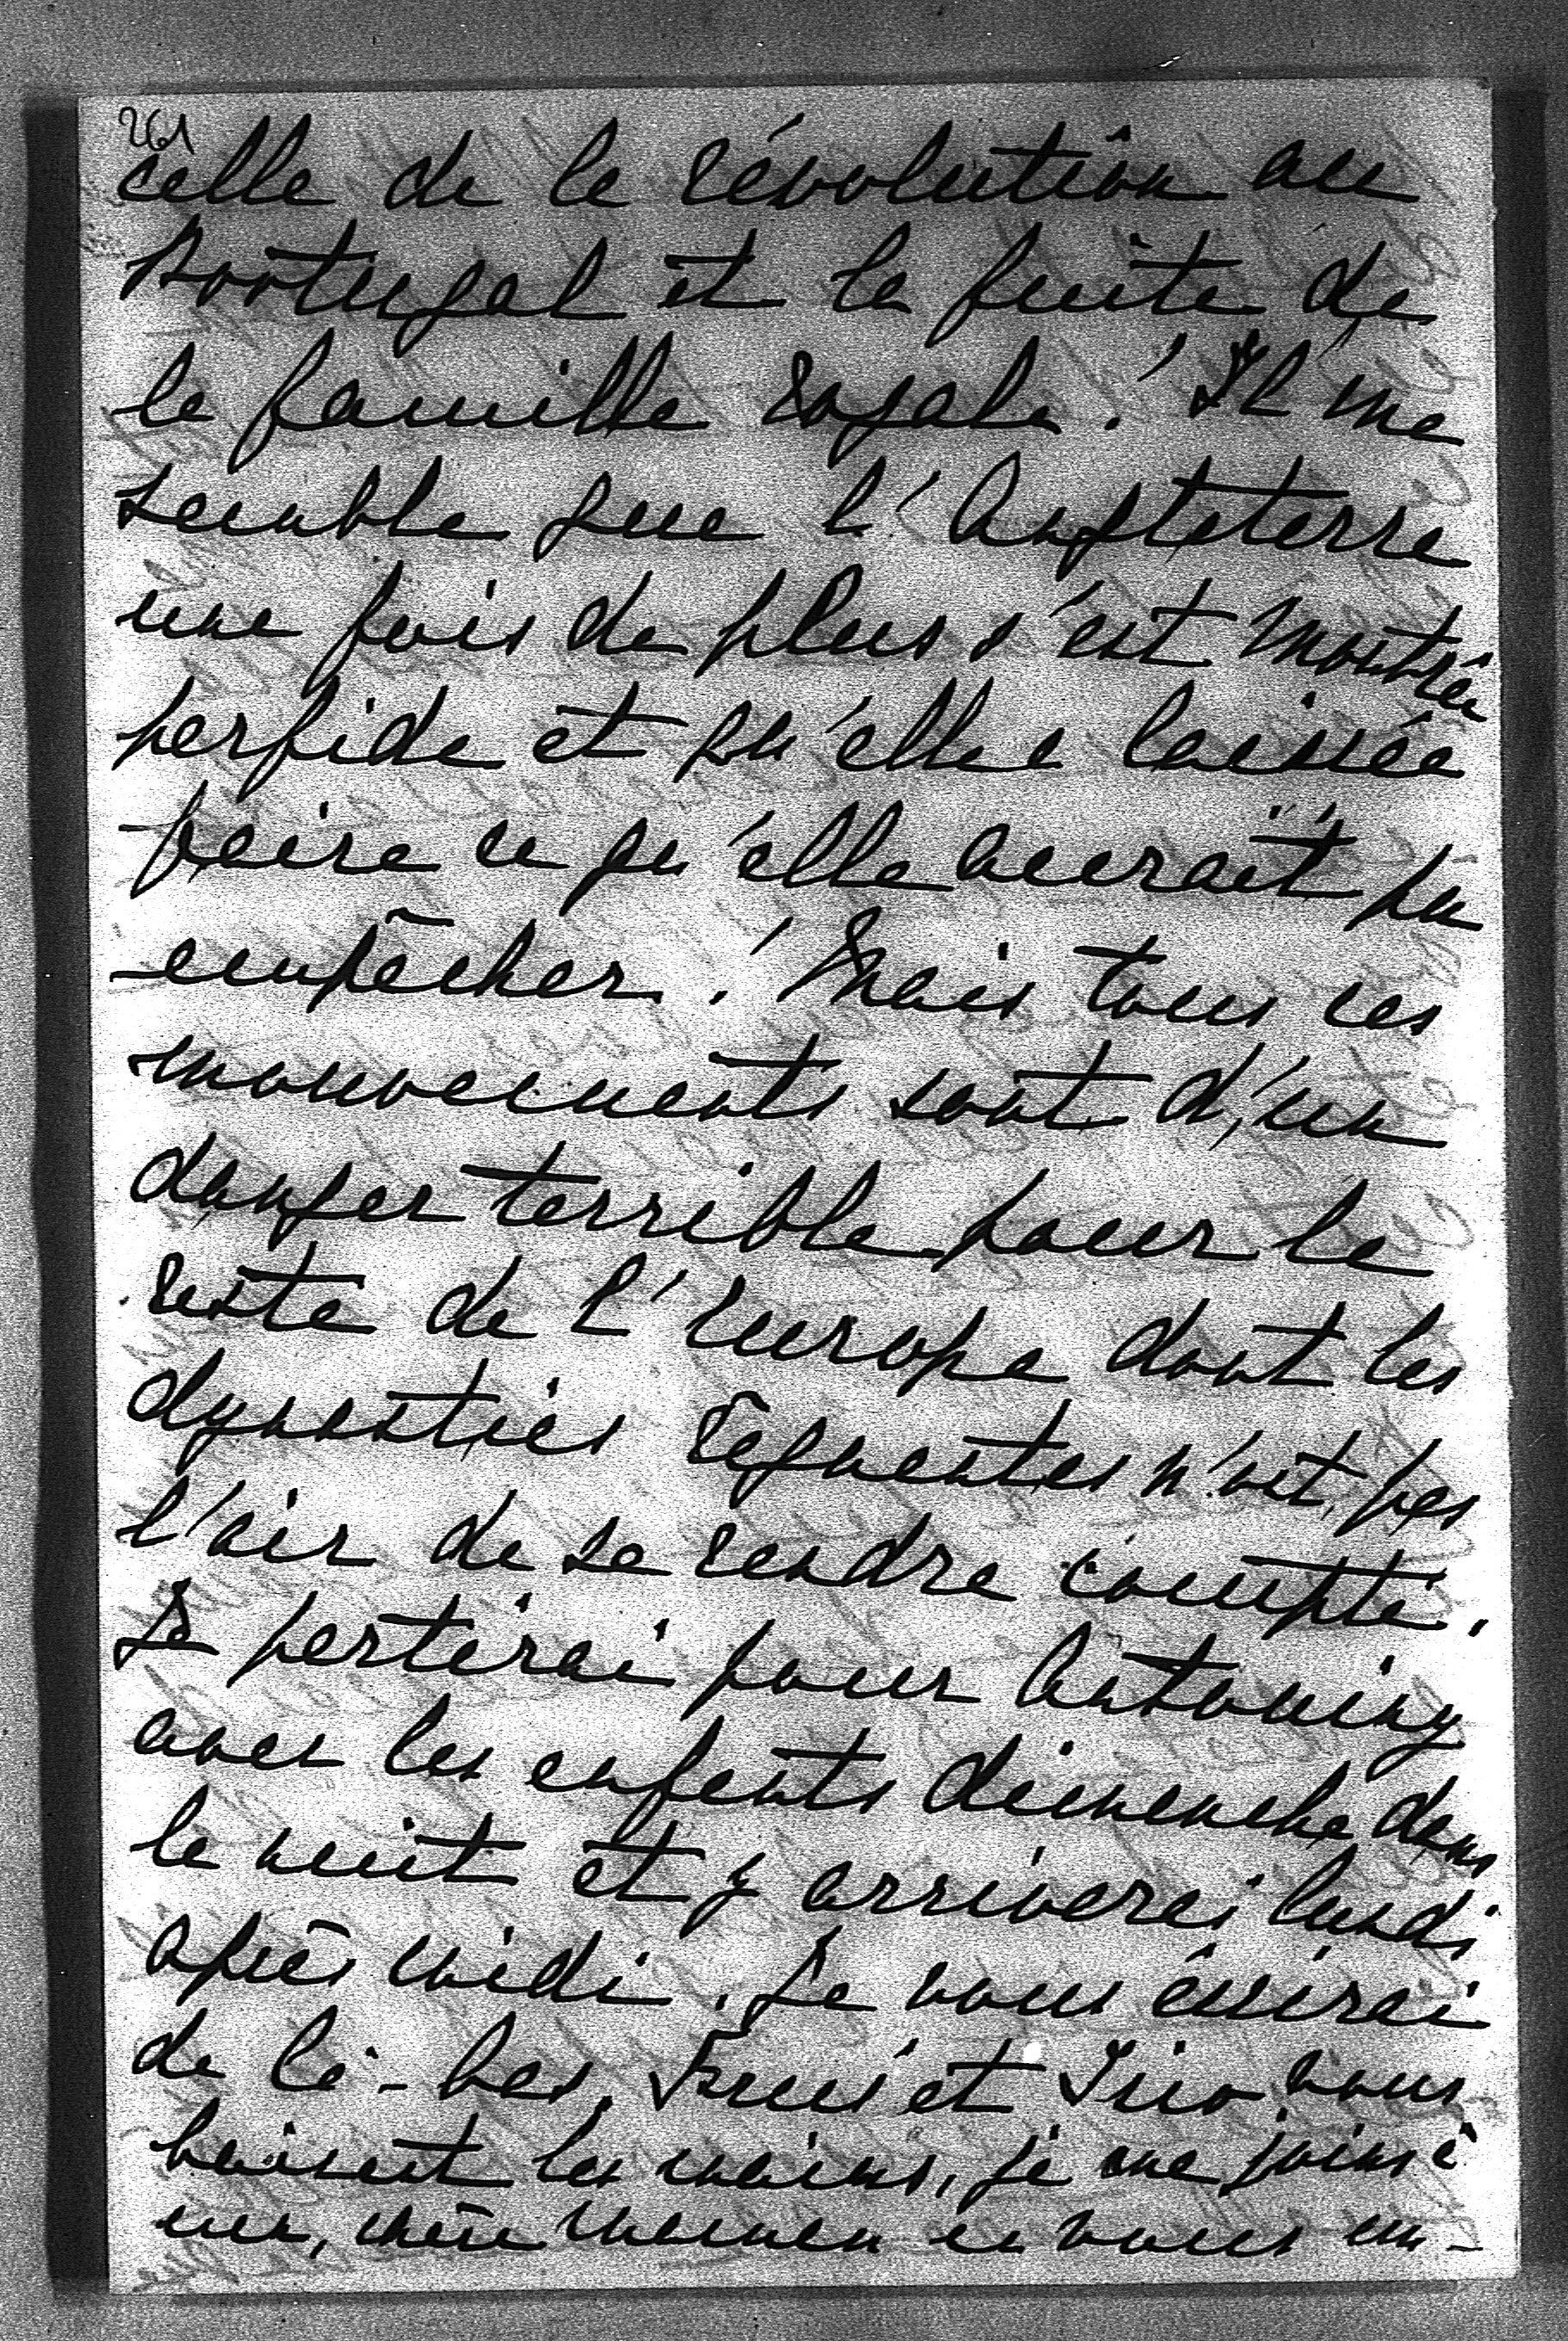 261
celle de la révolution au
Portugal et la fuite de
la famille royale! Il me
semble que l'Angleterre
une fois de plus s'est montrée
perfide et qu'elle a laissée
faire ce qu'elle aurait pu
empêcher! Mais tous ces
mouvements sont d'un
danger terrible pour le
reste de l'Europe dont les
dynasties régnantes n'ont pas
l'air de se rendre compte.
Je partirai pour Antoniny
avec les enfants dimanche dans
la nuit et y arriverai lundi
après midi. Je vous écrirai
de là-bas. et vous
baisent les mains, je me joins à
eux, chère Maman en vous em-